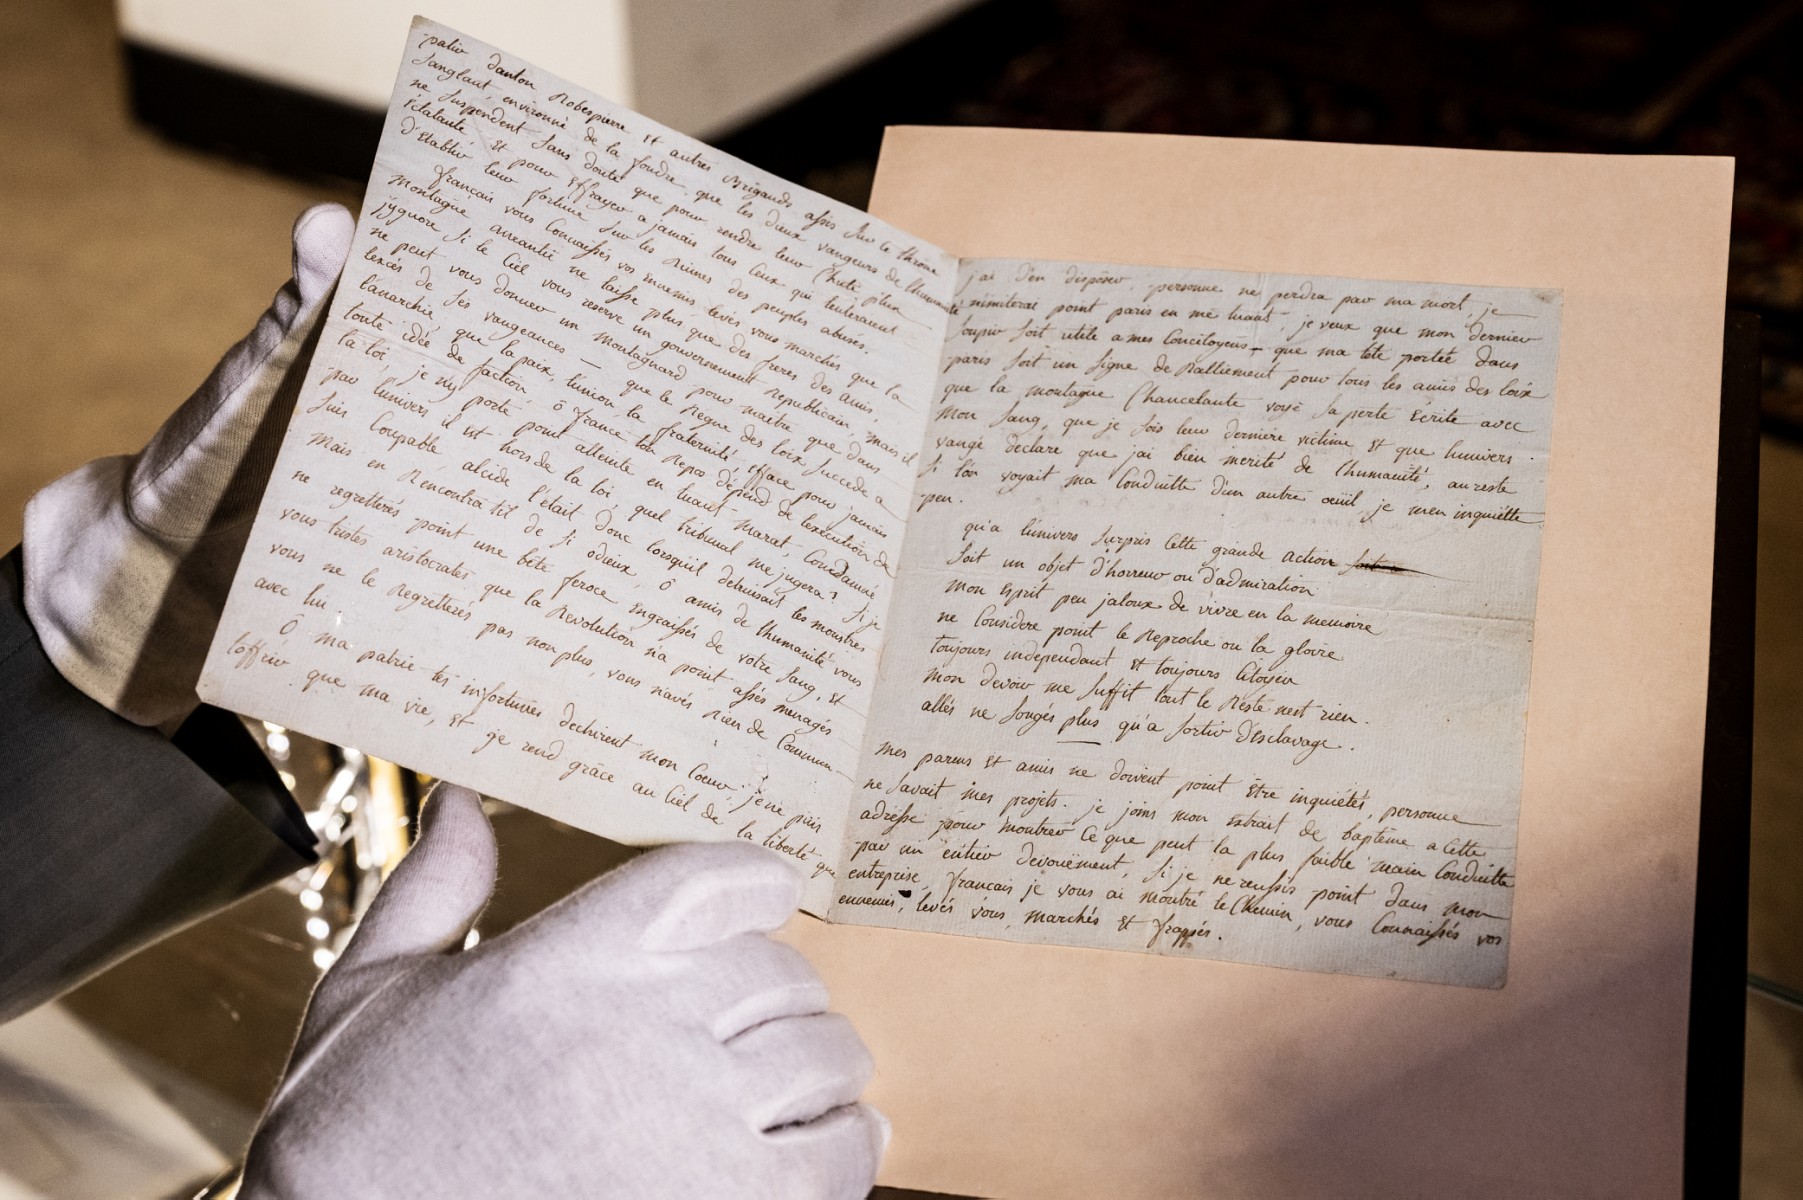 palir danton Robespierre et autres Brigands assis sur le thrône
sanglant, environné de la foudre, que les dieux vangeurs de l'humanité
ne suspendent sans doute que pour rendre leur Chute plus
éclatante et pour effrayer a jamais tous ceux qui tenteraient
d'Etablir leur fortune sur les Ruines des peuples abusés.
français vous Connaissés vos ennemis, levés vous marchés que la
Montagne aneantie ne laisse plus que des freres des amis,
j'ygnore si le Ciel vous reserve un gouvernement Republicain, mais il
ne peut vous donner un Montagnard pour maitre que dans
l'excés de ses vangeances — que le Regne des loix succede a
l'anarchie, que la paix, l'union, la fraternité efface pour jamais
toute idée de faction, ô france ton Repos dépend de l'exécution de
la loi, je n'y porte point atteinte en tuant Marat, Condamné
par l'univers il est hors de la loi, quel tribunal me jugera? Si je
suis Coupable, alcide l'était donc lorsquil detruisait les monstres
Mais en Rencontra t'il de si odieux, ô amis de l'humanité vous
ne regretterés point une bête feroce engraissés de votre sang, et
vous tristes aristocrates que la Revolution n'a point assés menagés
vous ne le Regretterés pas non plus, vous n'avés Rien de Commun
avec lui.
Ô ma patrie tes infortunes dechirent mon Coeur, je ne puis
t'offrir que ma vie, et je rend grâce au Ciel de la liberté que
j'ai d'en disposer, personne ne perdra par ma mort, je
n'imiterai point paris en me tuant, je veux que mon dernier
soupir soit utile a mes Concitoyens — que ma tête portée dans
paris soit un signe de Ralliement pour tous les amis des loix
que la montagne Chancelante voye sa perte Ecrite avec
mon sang, que je sois leur derniére victime et que l'univers
vangé declare que j'ai bien merité de l'humanité, au reste
si l'on voyait ma Conduitte d'un autre oeüil je m'en inquiétte
peu.
qu'a l'univers surpris Cette grande action
soit un objet d'horreur ou d'admiration
mon esprit peu jaloux de vivre en la memoire
ne Considere point le Reproche ou la gloire
toujours independant et toujours Citoyen
mon devoir me suffit tout le Reste n'est rien.
allés ne songés plus qu'a sortir d'esclavage.
Mes parens et amis ne doivent point être inquiétés, personne
ne savait mes projets. je joins mon extrait de baptême a Cette
adresse pour montrer ce que peut la plus faible main Conduitte
par un entier devouëment, si je ne reussis point dans mon
entreprise, francais je vous ai montré le Chemin, vous Connaissés vos
ennemis, levés vous, marchés et frappés.